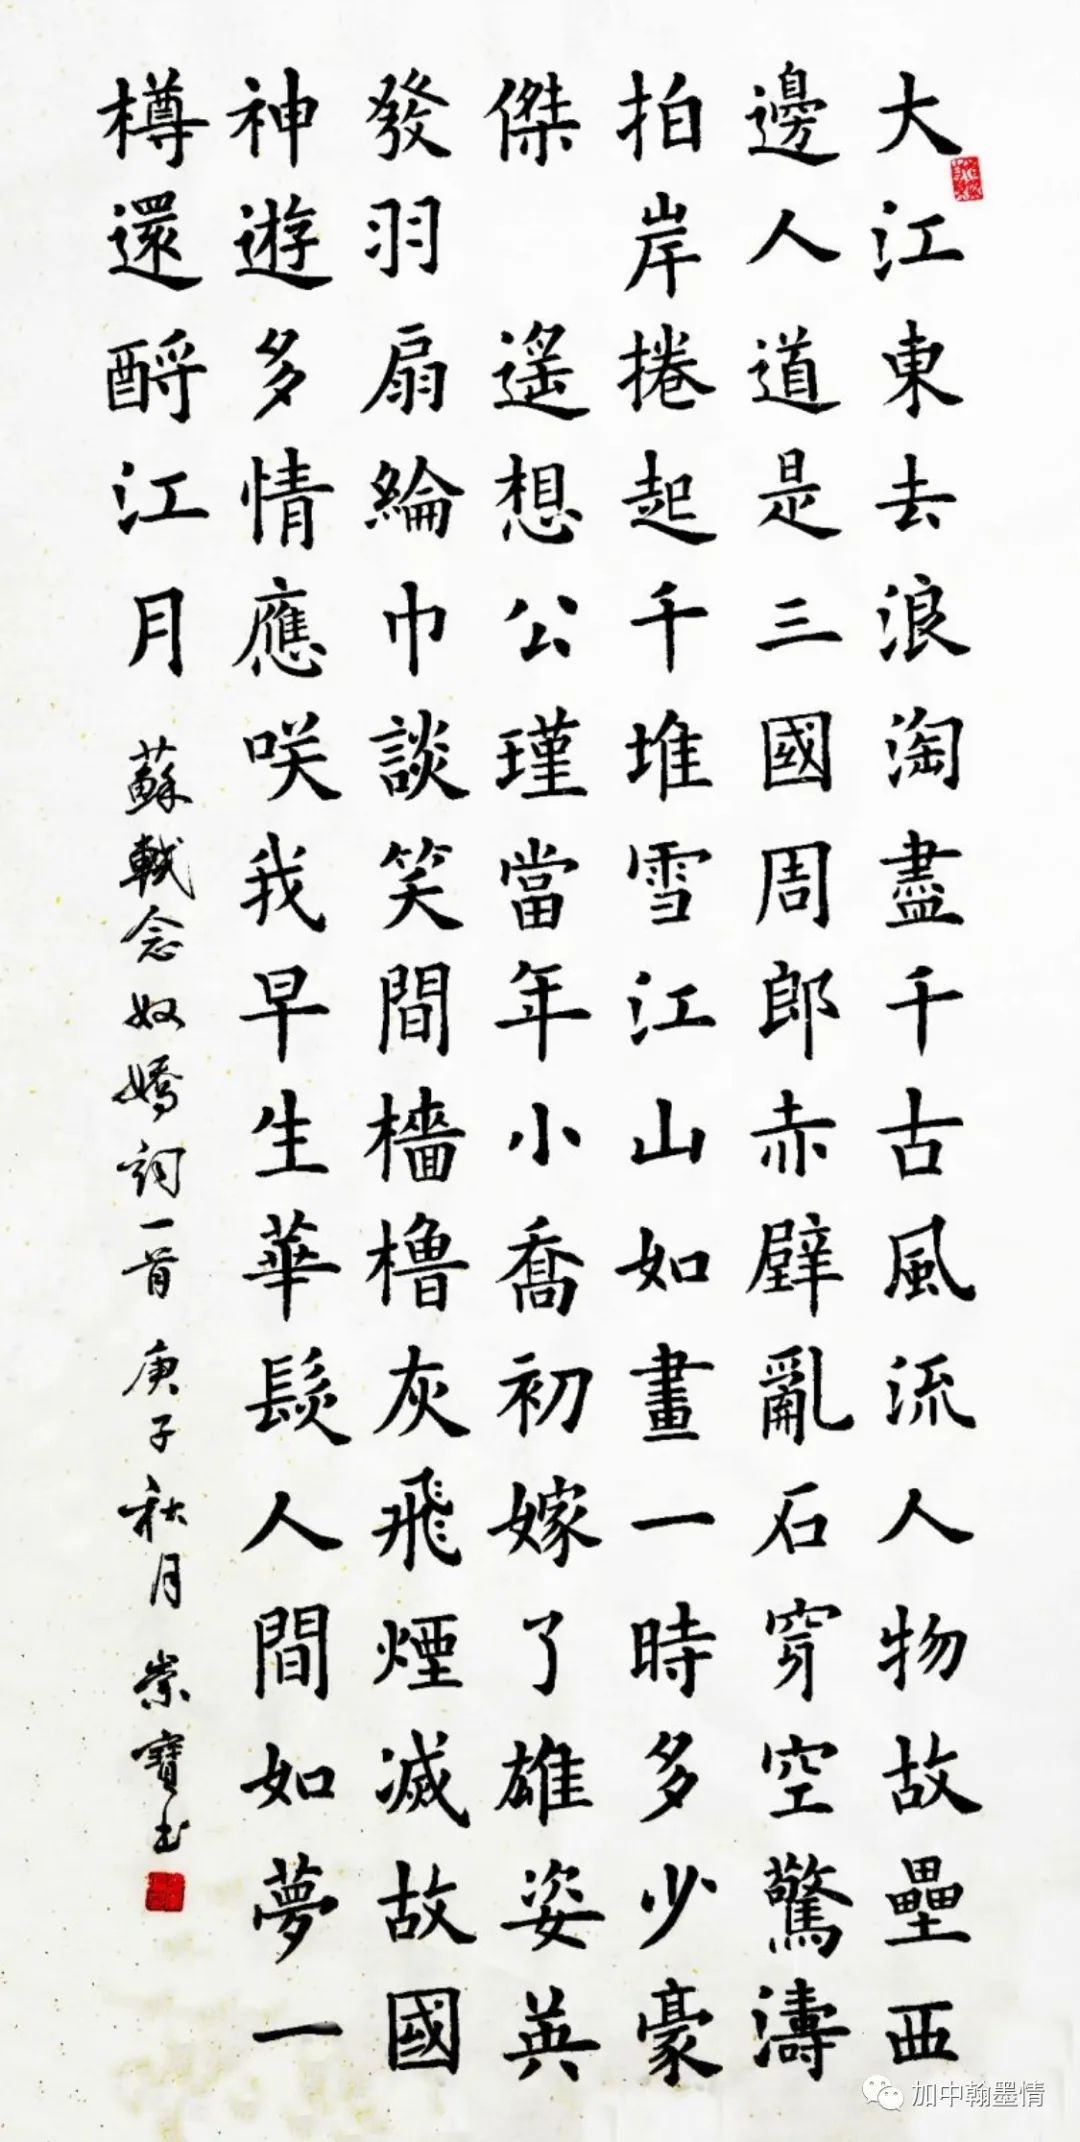 大江東去浪淘盡千古風流人物故壘西
邊人道是三國周郎赤壁亂石穿空驚濤
拍岸捲起千堆雪江山如畫一時多少豪
傑 遙想公瑾當年小喬初嫁了雄姿英
發羽扇綸巾談笑間檣櫓灰飛煙滅故國
神遊多情應咲我早生華髮人間如夢一
樽還酹江月 蘇軾念奴嬌詞一首 庚子秋月 崇寶书
加中翰墨情